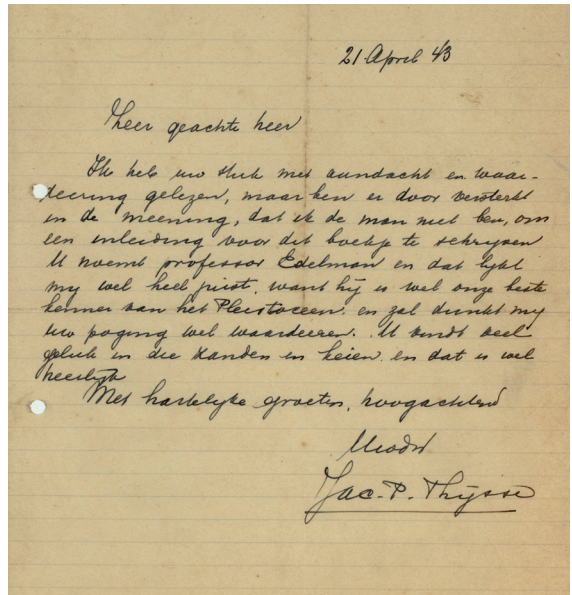 21 April 43
Zeer geachte heer
Ik heb uw stuk met aandacht en waar-
deering gelezen, maar ben er door versterkt
in de meening, dat ik de man niet ben, om
een inleiding voor dit boekje te schrijven
U noemt professor Edelman en dat lijkt
my wel heel juist, want hij is wel onze beste
kenner van het Pleistoceen en zal dunkt my
uw poging wel waardeeren. U vindt veel
geluk in die zanden en keien en dat is wel
heerlijk
Met hartelyke groeten, hoogachtend
Uwdw
Jac. P. Thijsse